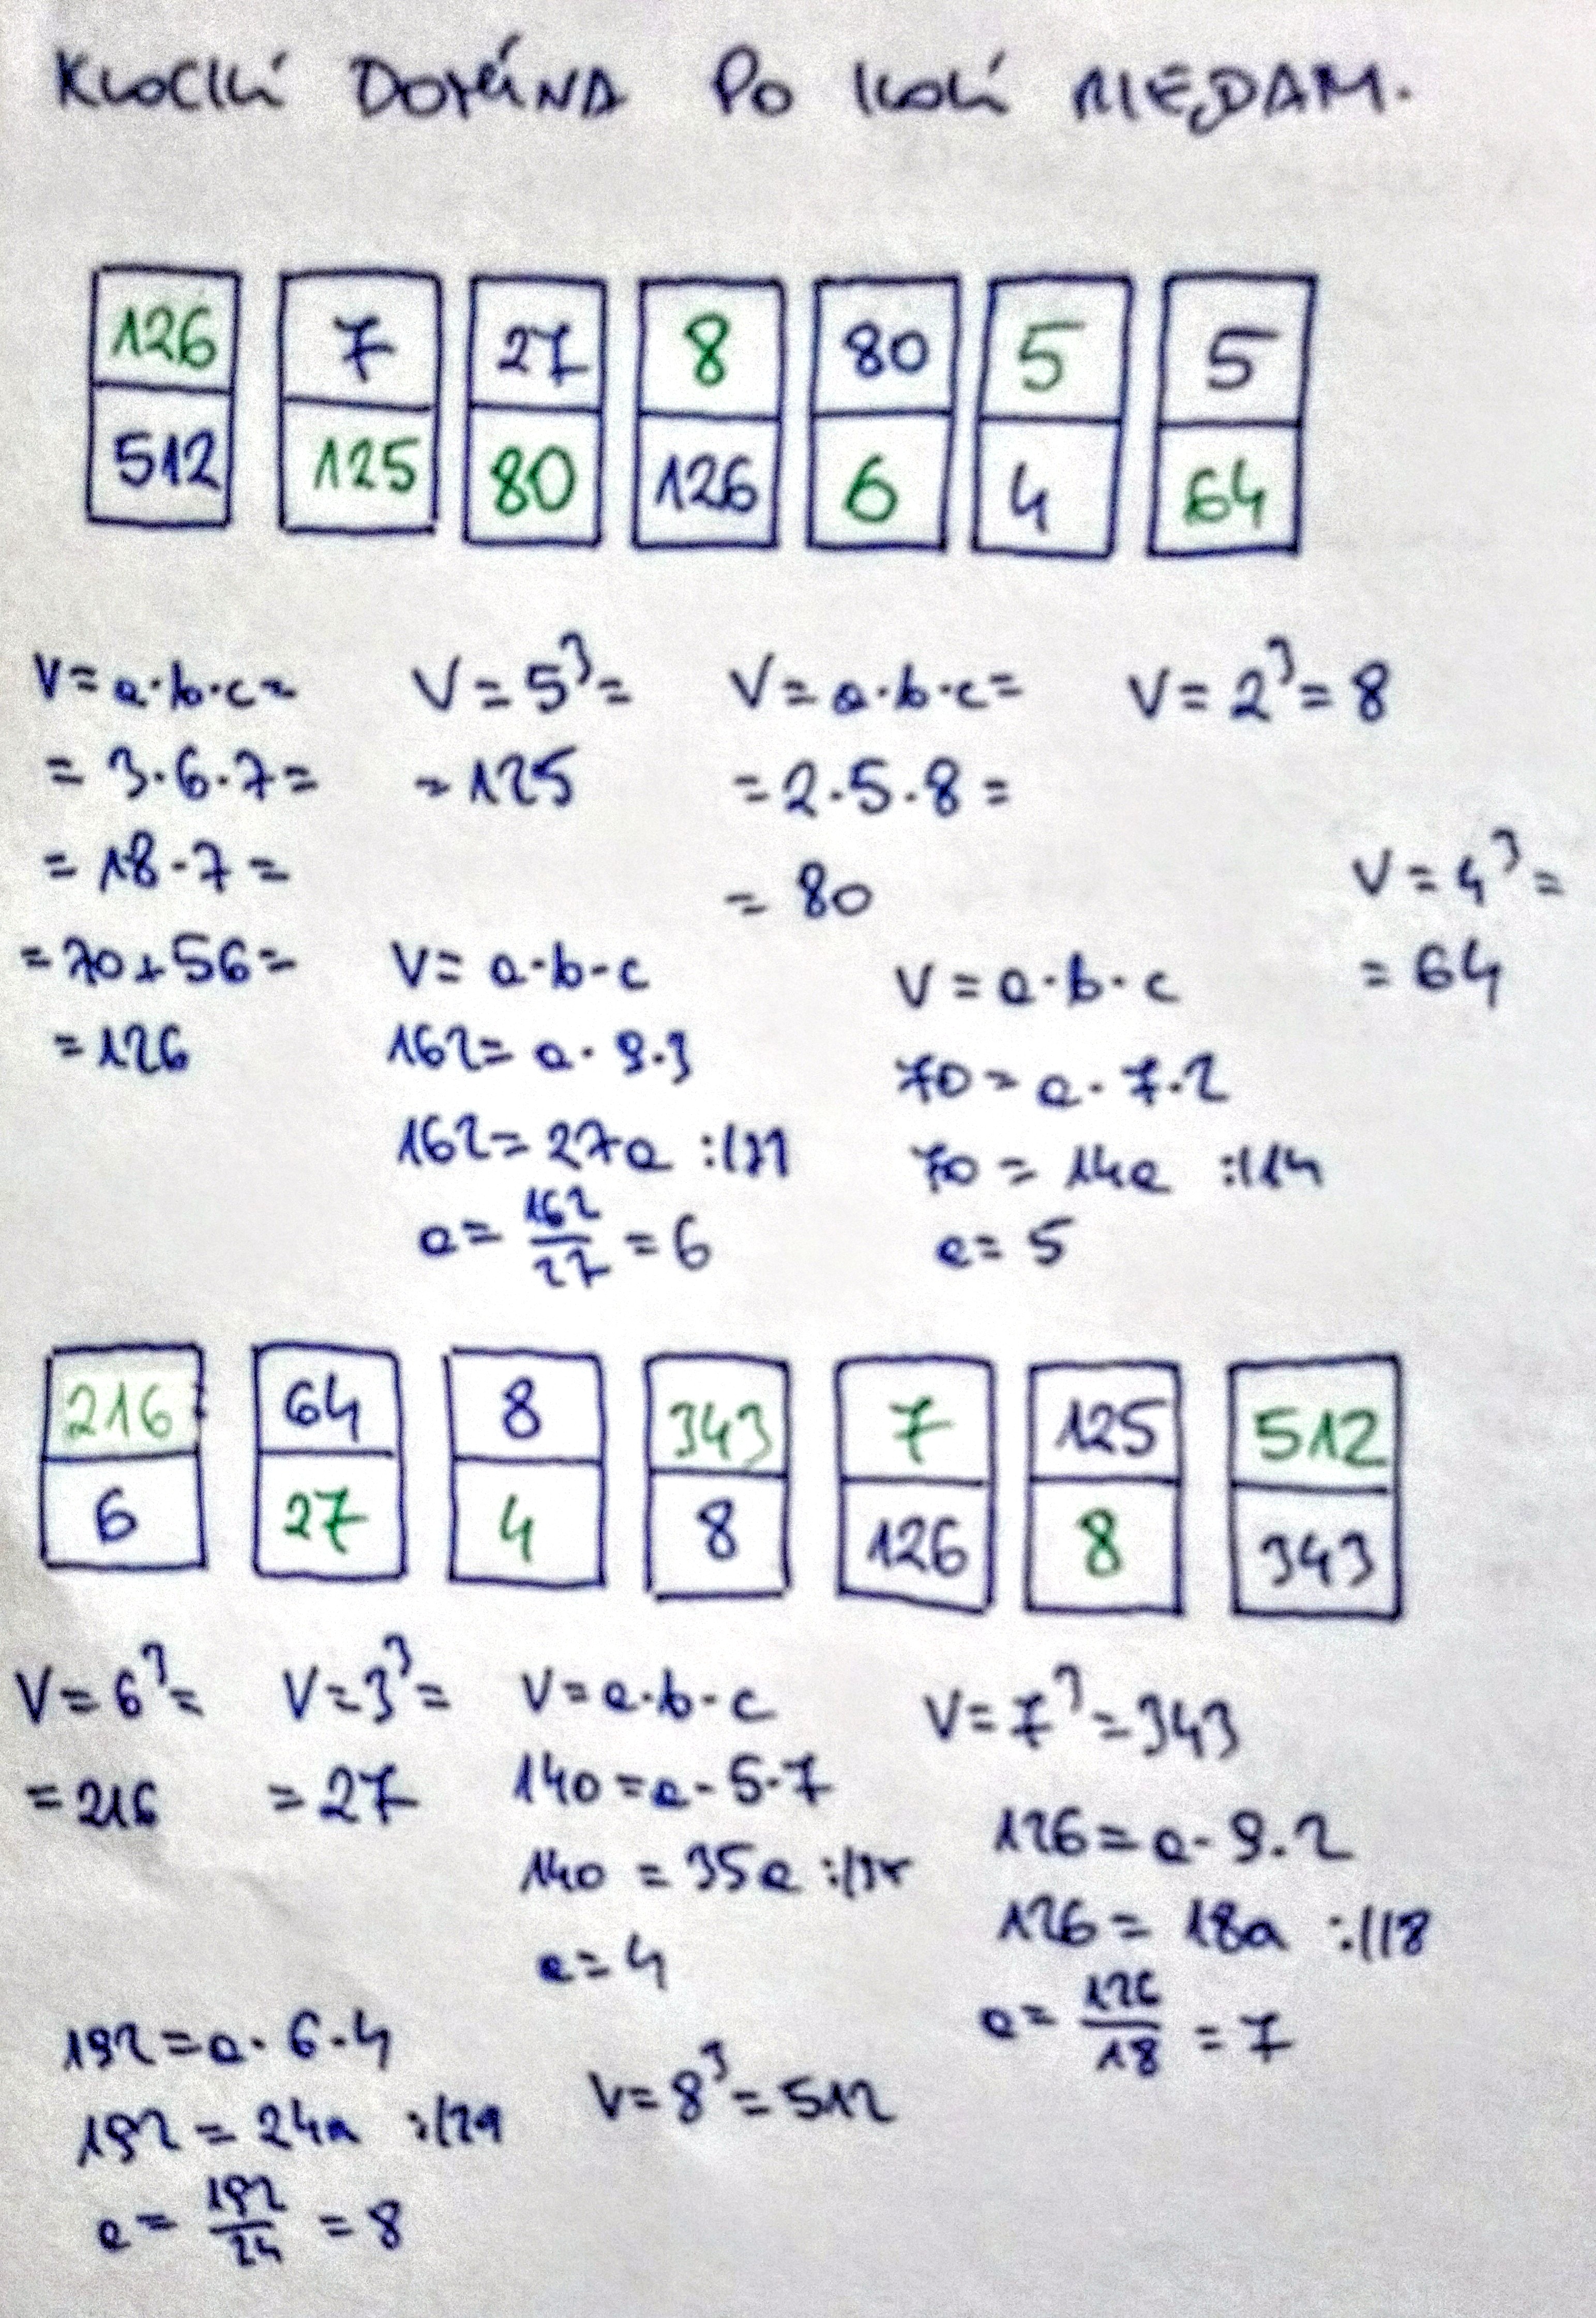 KLOCKI DOMINA PO KOLEI
126 7 27 8 80 5 5
512 125 80 126 6 4 64
V=a·b·c=
= 3·6·7=
= 18·7=
=70+56=
=126
V=5³=
=125
V=a·b·c=
=2·5·8=
= 80
V=2³=8
V=4³=
=64
V=a·b·c
162=a·9·3
162=27a
a=162/27=6
V=a·b·c
70=a·7·2
70=14a :|14
a=5
216 64 8 343 7 125 512
6 27 4 8 126 8 343
V=6³=
=216
V=3³=
=27
V=a·b·c
140=a·5·7
140=35a
a=4
V=7³=343
126=a·9·2
126=18a :|18
a=126/18=7
192=a·6·4
192=24a
a=192/24=8
V=8³=512